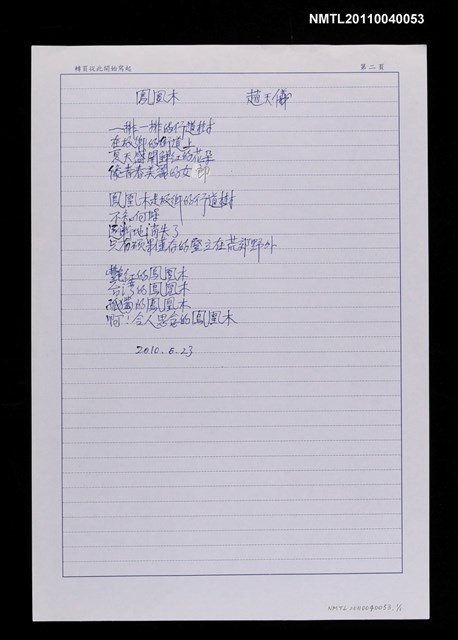 NMTL20110040053
轉頁從此開始寫起
第二頁
鳳凰木 趙天儀
一排一排的行道樹
在故鄉的街道上
夏天盛開鮮紅的花朵
像青春美麗的女郎
鳳凰木是故鄉的行道樹
不知何時
逐漸地消失了
只有碩果僅存的豎立在荒郊野外
艷紅的鳳凰木
台灣的鳳凰木
的鳳凰木
啊!令人思念的鳳凰木
2010.6.23